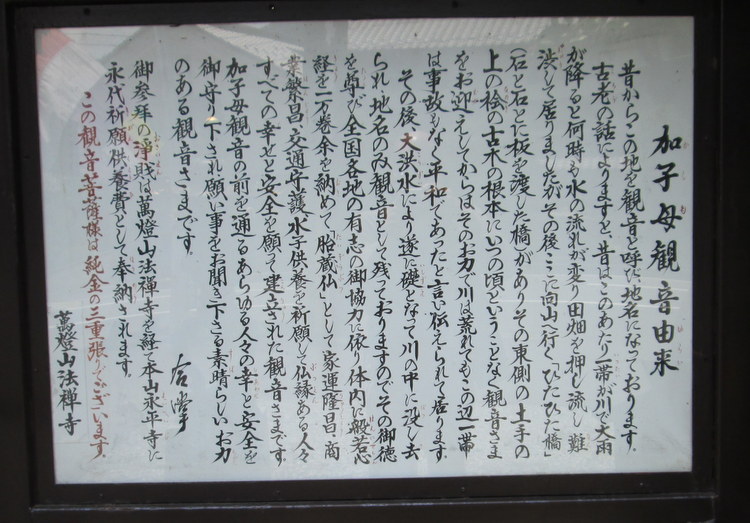 加子母觀音由来
昔からこの地を観音と呼び地名になっております。
古老の話によりますと、昔はこのあたり一帯が川で大雨
が降ると何時も水の流れが変り田畑を押し流し難
渋して居りましたがその後ここに向山へ行く「ひたひた橋」
(石と石とに板を渡した橋)がありその東側の土手の
上の桧の古木の根本にいつの頃ということなく観音さま
をお迎えしてからはそのお力で川は荒れてもこの辺一帯
は事故もなく平和であったと言い伝えられて居ります
その後大洪水により遂に礎となって川の中に没し去
られ地名のみ観音として残っておりますのでその御徳
を尊び全国各地の有志の御協力に依り体内に般若心
経を一万巻余を納めて「胎蔵仏」として家運隆昌、商
業繁昌、交通守護、水子供養を祈願して仏縁ある人々
すべての幸せと安全を願って建立された観音さまです
加子母観音の前を通るあらゆる人々の幸と安全を
御守り下され願い事をお聞き下さる素晴らしいお力
のある観音さまです。
合掌
御参拝の浄財は萬燈山法禅寺を経て本山永平寺に
永代祈願供養費として奉納されます。
この観音菩薩様は純金の三重張りでございます。
萬燈山法禅寺